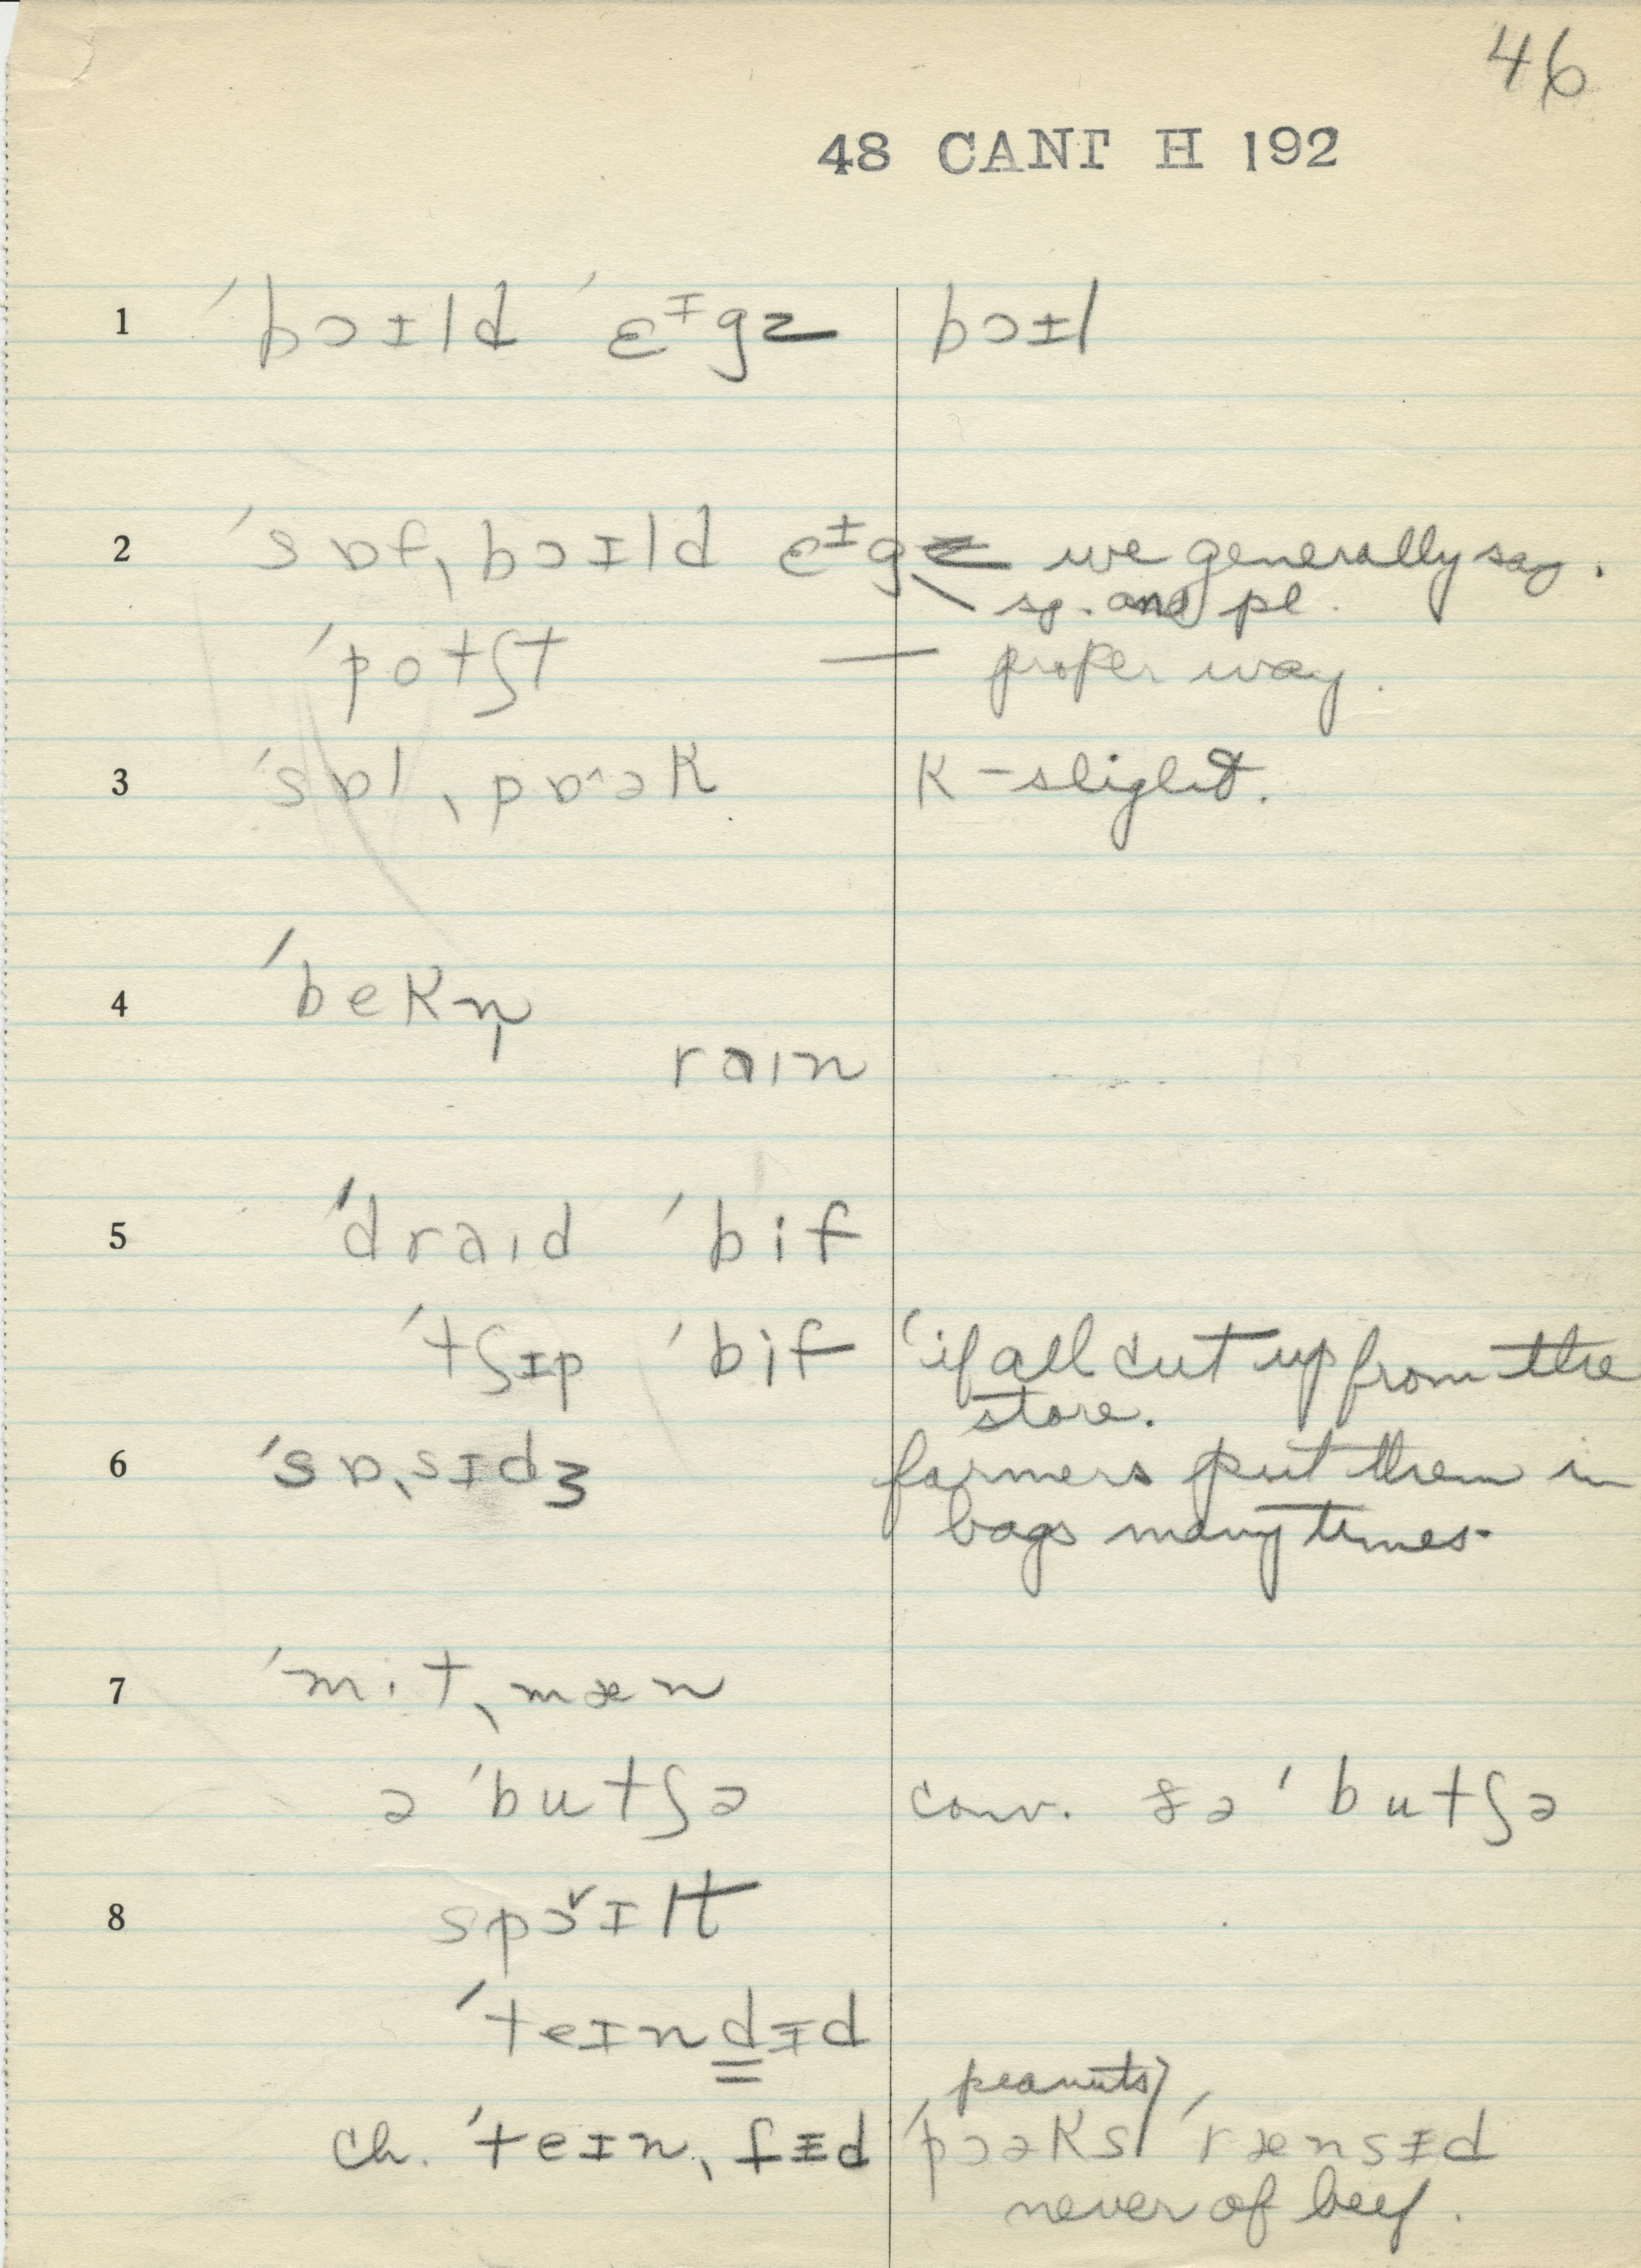 46
48 CANT H 192
1 ˈbɔɪld ˈɛᶦgz bɔɪl
2 ˈsɒfˌbɔɪld ɛᶦgz we generally say.
sg. and pl.
ˈpotʃt — proper way.
3 ˈsɒlˌpɒ˄əK K - slight.
4 ˈbeKn̩
raın
5 ˈdraıd ˈbif
ˈtʃɪp ˈbif 'if all cut up from the
store.
6 ˈsɒˌsɪdʒ farmers put them in
bags many times.
7 ˈmitˌmæn
ə ˈbutʃə conv. ðə ˈbutʃə
8 spɔ˅ɪlt
ˈteɪndɨd
peanuts)
ch. ˈteɪnˌfɨd ˈpɔəKs/ ˈrænsɨd
never of beef.